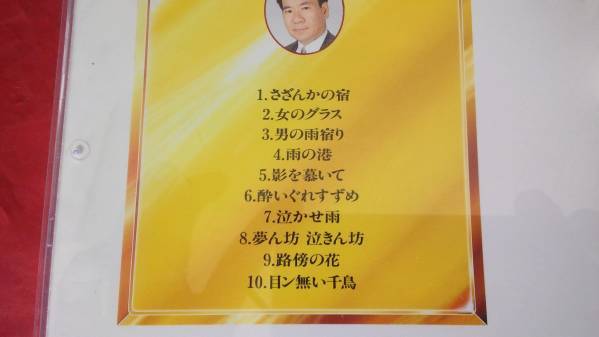 1.さざんかの宿
2.女のグラス
3.男の雨宿り
4.雨の港
5.影を慕いて
6.酔いぐれすずめ
7.泣かせ雨
8.夢ん坊 泣きん坊
9.路傍の花
10.目ン無い千鳥